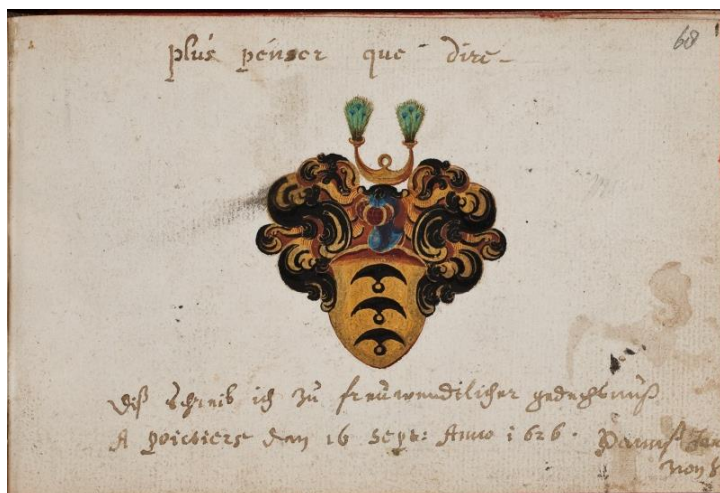 68
plus penser que dire
Diß schreib ich zu freuwendtlicher gedechtnuß
A Poictiers den 16 Sept: Anno 1626.
von